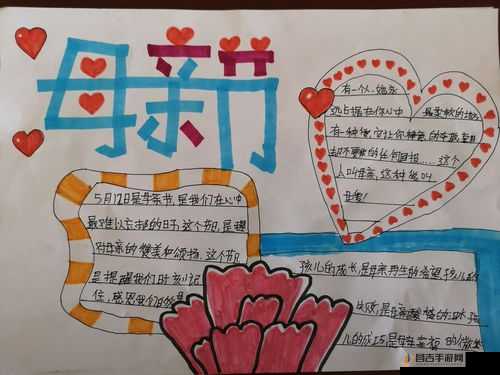 母亲节
有一个人,她永
远占据在你心中 最柔软的地方
有一种爱,它让你 的索取 享用
却不要你的任何回报……这个
人叫母亲,这种爱叫
母爱!
5月12日是母亲节,是我们在心中
最难以忘却的日子,这个节,是
对母亲的赞美和颂扬,这个节,
是提醒我们时刻记
住,感恩我们的
孩儿的成长,是母亲再生的希望,孩儿的
失败,是母亲酸楚的泪水,孩
儿的成功,是母亲幸福的微笑
吉手游网